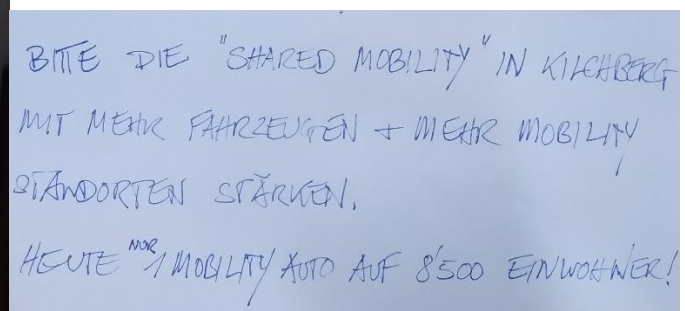 BITTE DIE "SHARED MOBILITY" IN KILCHBERG
MIT MEHR FAHRZEUGEN + MEHR MOBILITY
STANDORTEN STÄRKEN.
HEUTE NUR 1 MOBILITY AUTO AUF 8'500 EINWOHNER!